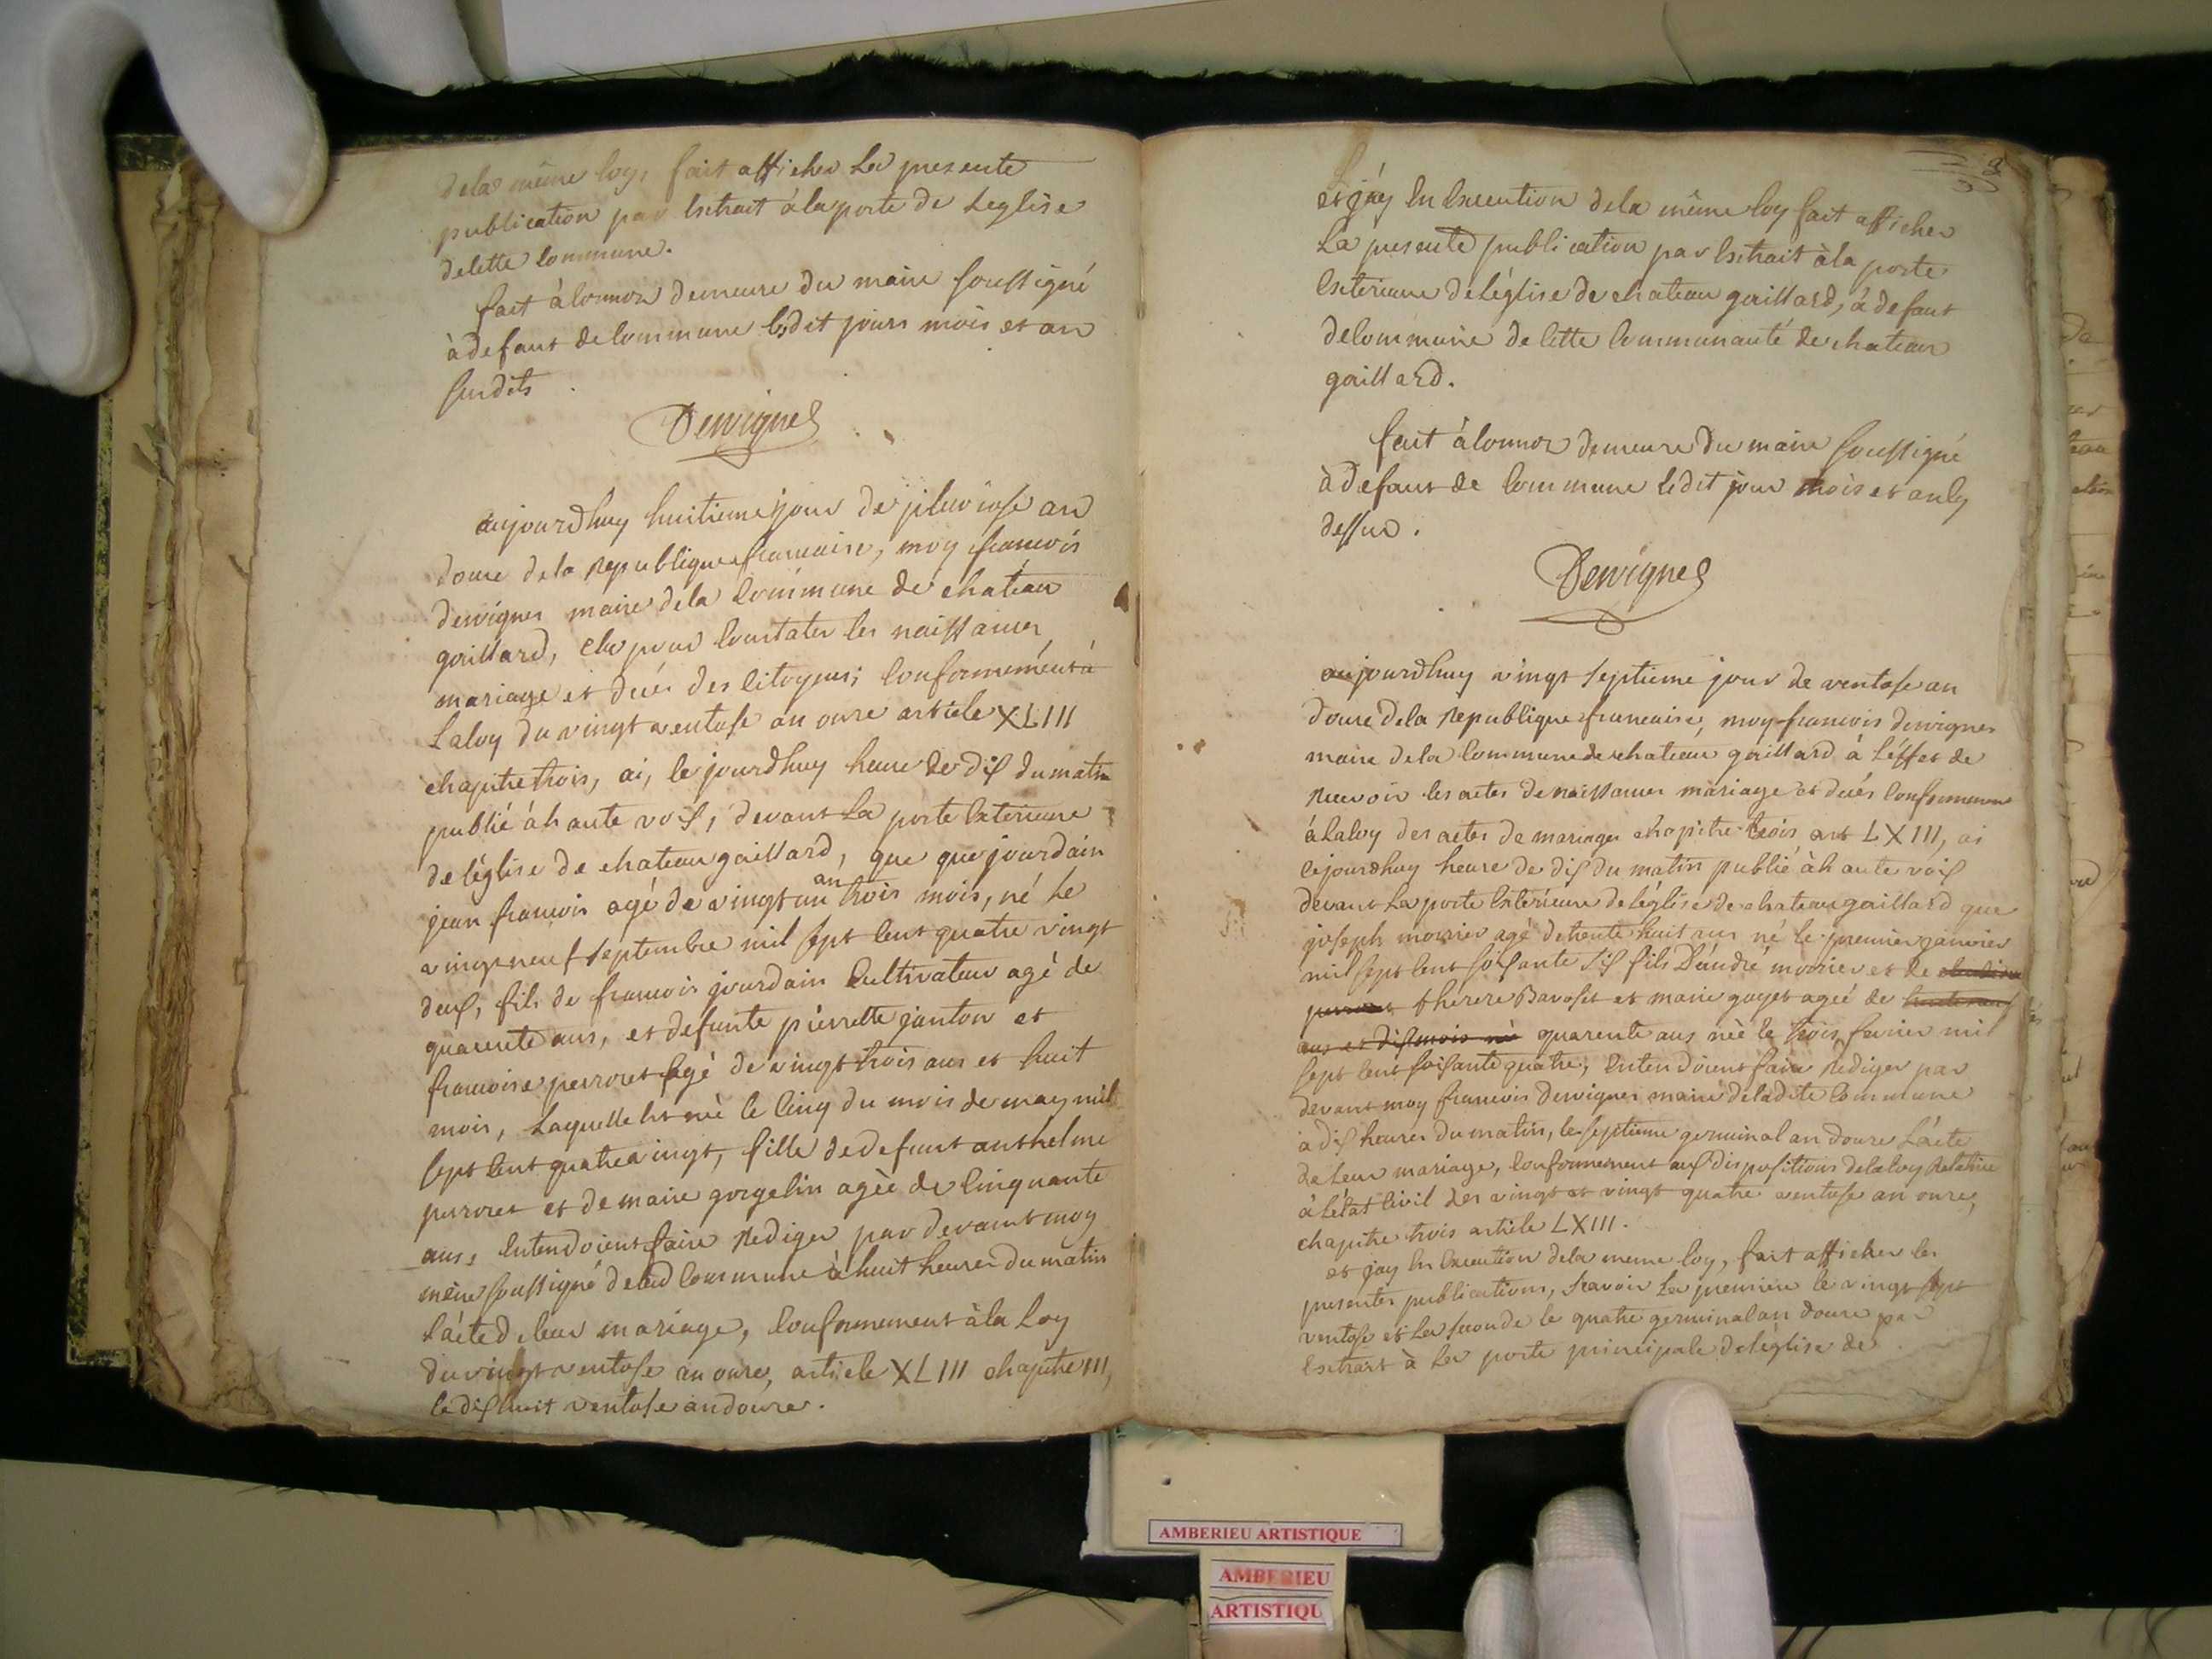 dela même loy, fait afficher La presente
publication par Extrait à la porte de Leglise
de Cette Commune.
fait à Connor demeure du maire soussigné
à defaut de Commune lesdit jours mois et an
susdits.
Dervignes
aujourdhuy huitieme jour de pluviose an
douze dela Republique francaise, moy francois
dervignes maire dela Commune de chateau
gaillard, Elu pour Constater les naissances
mariage et décés des Citoyens; Conformement à
La loy du vingt ventose an onze article XLIII
chapitre trois, ai, le jourdhuy heure de dix du matin
publié à haute voix, devant La porte Exterieure
de léglise de chateau gaillard, que que jourdain
jean francois agé de vingt un an trois mois, né Le
vingt neuf septembre mil sept Cent quatre vingt
deux, fils de francois jourdain Cultivateur agé de
quarente ans, et defunte pierrette janton et
francoise perroset agé de vingt trois ans et huit
mois, Laquelle Est née le Cinq du mois de may mil
sept Cent quatre vingt, fille de defunt anthelme
perroset et de marie gorgelin agée de Cinquante
ans, Entendoient faire Rediger par devant moy
maire soussigné de lad Commune à huit heures du matin
L'acte de leur mariage, Conformement à la Loy
du vingt ventose an onze, article XLIII chapitre III,
le dix huit ventose an douze.
2
et jáy En Execution dela même loy fait afficher
La presente publication par Extrait à la porte
Exterieure de Léglise de chateau gaillard, à defaut
de Commune de Cette Communauté de chateau
gaillard.
fait à Connor demeure du maire soussigné
à defaut de Commune ledit jour mois et an Cy
dessus.
Dervignes
aujourdhuy vingt septieme jour de ventose an
douze dela Republique francaise, moy francois dervignes
maire dela Commune de chateau gaillard à L'éffet de
Recevoir les actes de naissances mariage et décés Conformement
à la loy des actes de mariages chapitre trois art LXIII, ai
Cejourdhuy heure de dix du matin publié à haute voix
devant La porte Extérieure de léglise de chateau gaillard que
joseph mornier agé de trente huit ans né le premier janvier
mil sept Cent soixante six fils D'andré mornier et de
therese Baroset et marie goyet agée de
ans et dix mois née quarente ans née le trois fevrier mil
sept Cent soixante quatre, Entendoient faire Rediger par
devant moy francois dervignes maire de ladite Commune
à dix heures du matin, le septieme germinal an douze L'acte
de Leur mariage, Conformement aux dispositions dela loy Relative
à L'état Civil des vingt et vingt quatre ventose an onze,
chapitre trois article LXIII.
et jay En Execution dela meme loy, fait afficher les
presentes publications, scavoir La premiere le vingt sept
ventose et La seconde le quatre germinal an douze par
Extrait à La porte principale de léglise de
AMBERIEU ARTISTIQUE
AMBERIEU
ARTISTIQU